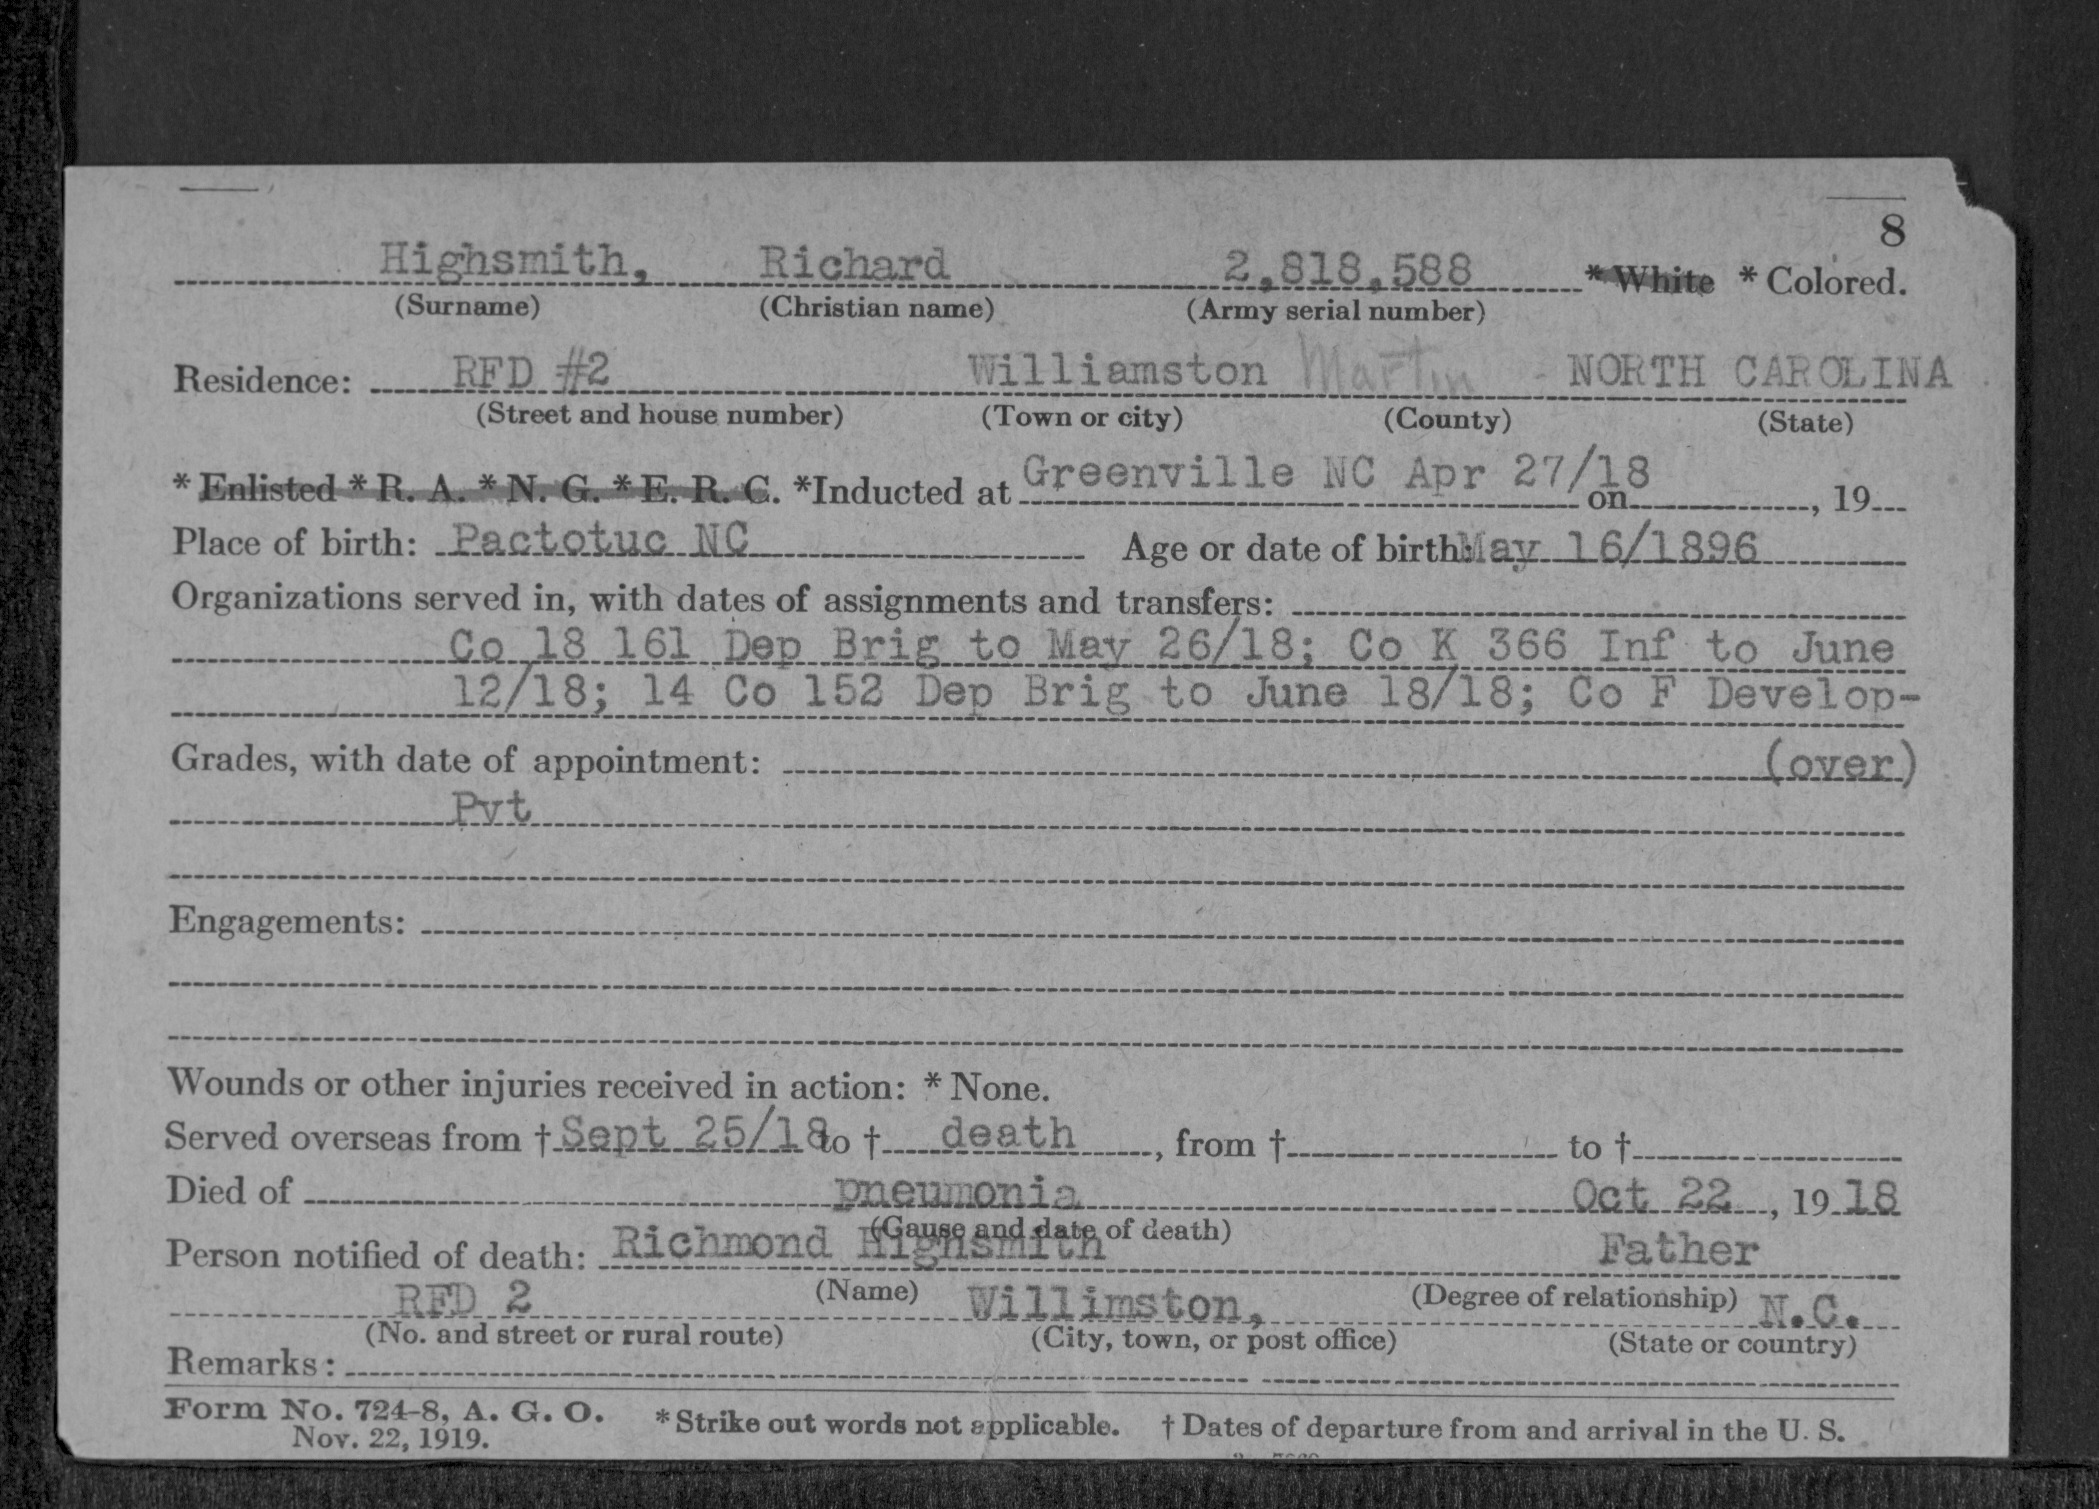 8
Highsmith, Richard 2,818,588 * White * Colored.
(Surname) (Christian name) (Army serial number)
Residence: RFD #2 Williamston Martin NORTH CAROLINA
(Street and house number) (Town or city) (County) (State)
* Enlisted * R. A. * N. G. * E. R. C. *Inducted at Greenville NC Apr 27/18 on , 19
Place of birth: Pactotuc NC Age or date of birth: May 16/1896
Organizations served in, with dates of assignments and transfers:
Co 18 161 Dep Brig to May 26/18; Co K 366 Inf to June
12/18; 14 Co 152 Dep Brig to June 18/18; Co F Develop-
Grades, with date of appointment: (over)
Pvt
Engagements:
Wounds or other injuries received in action: * None.
Served overseas from † Sept 25/18 to † death , from † to †
Died of pneumonia Oct 22 , 19 18
(Cause and date of death)
Person notified of death: Richmond Highsmith Father
(Name) (Degree of relationship)
RFD 2 Willimston, N.C.
(No. and street or rural route) (City, town, or post office) (State or country)
Remarks:
Form No. 724-8, A. G. O. * Strike out words not applicable. † Dates of departure from and arrival in the U. S.
Nov. 22, 1919.